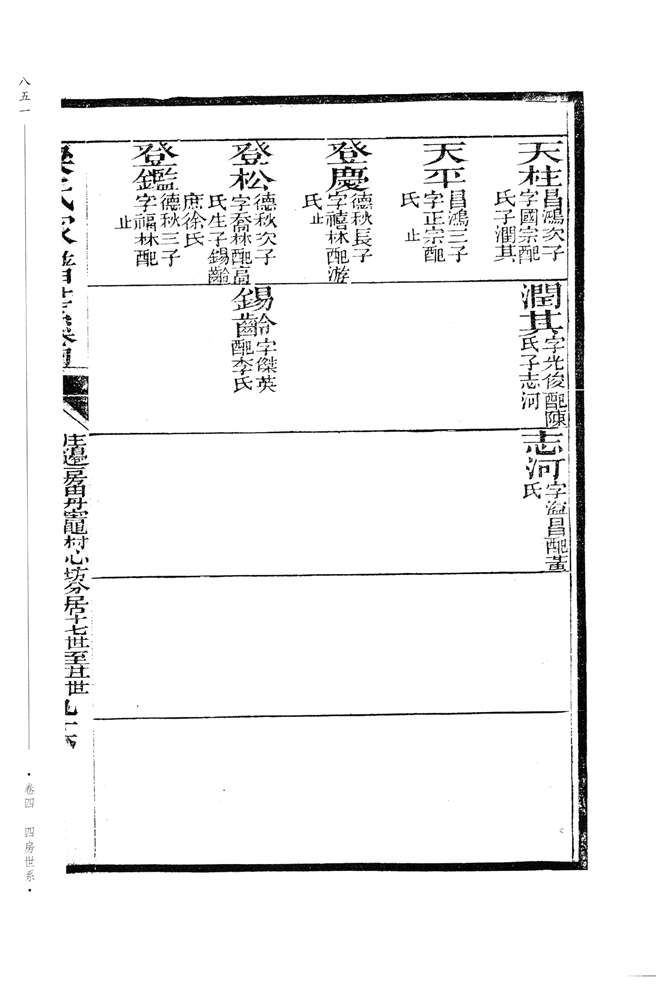 天柱
昌鴻次子
字國宗配
氏子潤其
天平
昌鴻三子
字正宗配
氏 止
登慶
德秋長子
字禧林配游
氏 止
登松
德秋次子
字喬林配高
氏生子錫齡
庶徐氏
登鑑
德秋三子
字福林配
止
潤其
字光俊配陳
氏子志河
錫齡
字傑英
配李氏
志河
字溢昌配黃
氏
氏家譜世系卷四
庄邊房由丹竈村心坊分居十七世至廿世
八五一
·卷四 四房世系·